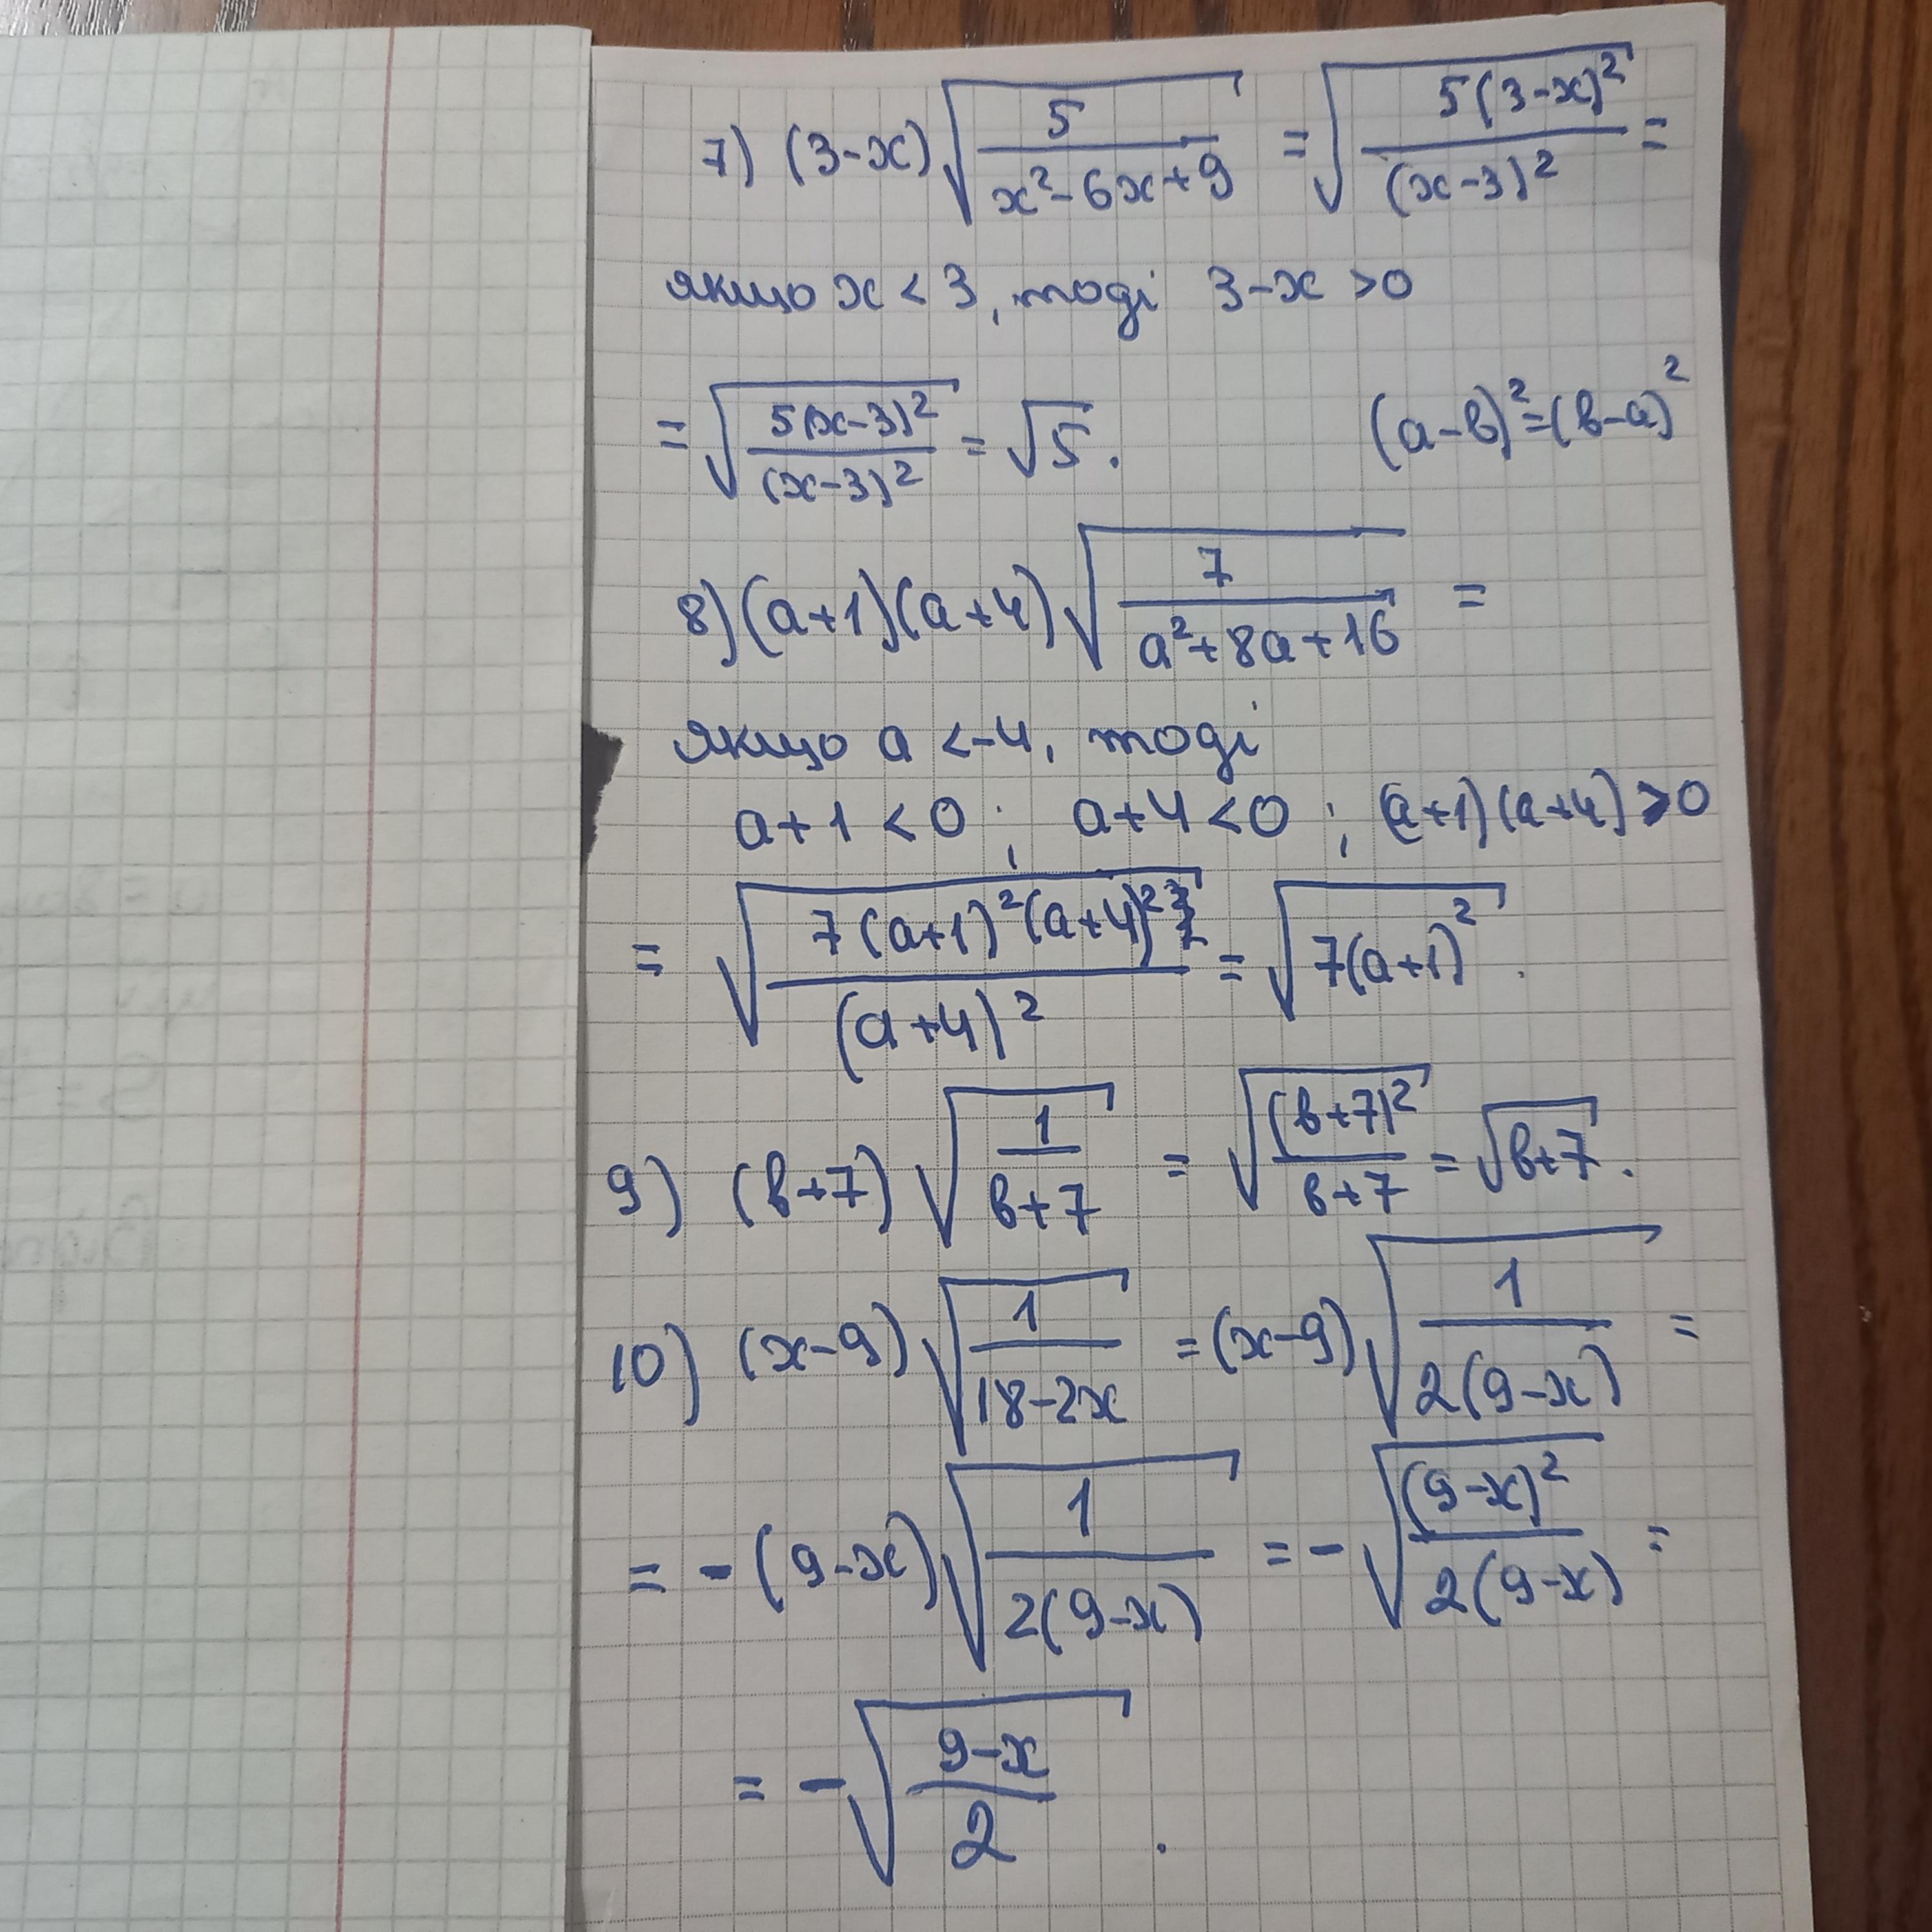 7) (3-x)√(5/(x²-6x+9)) = √(5(3-x)²/(x-3)²) =
якщо x < 3, тоді 3-x > 0
= √(5(x-3)²/(x-3)²) = √5. (a-b)²=(b-a)²
8) (a+1)(a+4)√(7/(a²+8a+16)) =
якщо a < -4, тоді
a+1 < 0 ; a+4 < 0 ; (a+1)(a+4) > 0
= √(7(a+1)²(a+4)²/(a+4)²) = √(7(a+1)²).
9) (b+7)√(1/(b+7)) = √((b+7)²/(b+7)) = √(b+7).
10) (x-9)√(1/(18-2x)) = (x-9)√(1/(2(9-x))) =
= -(9-x)√(1/(2(9-x))) = -√((9-x)²/(2(9-x))) =
= -√((9-x)/2).